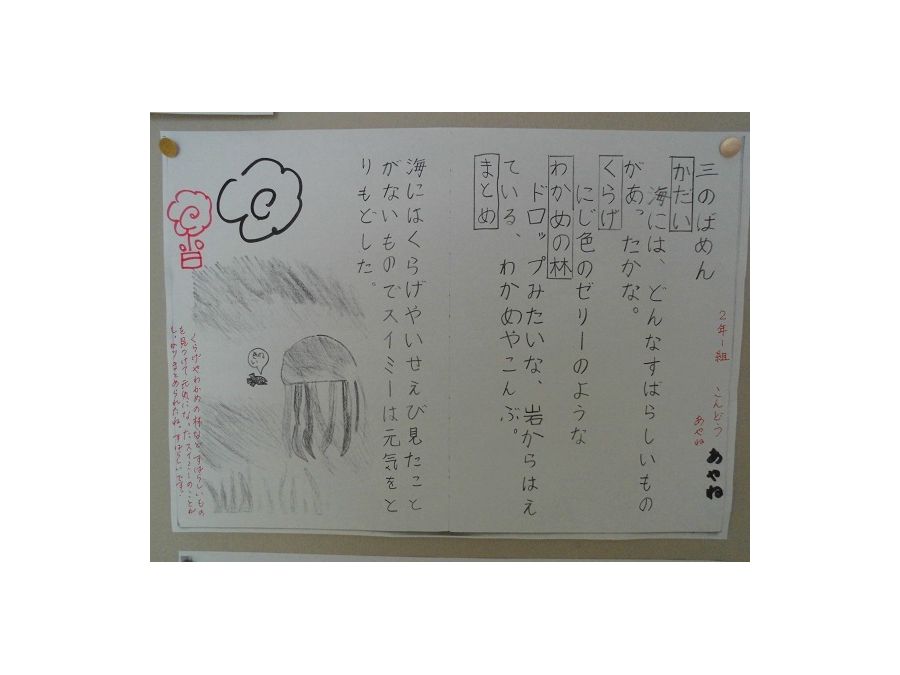 三のばめん
かだい
海には、どんなすばらしいもの
があったかな。
くらげ
にじ色のゼリーのような
わかめの林
ドロップみたいな、岩からはえ
ている、わかめやこんぶ。
まとめ
海にはくらげやいせえび見たこと
がないものでスイミーは元気をと
りもどした。
2年1組 こんどう
あやね
あやね
くらげやわかめの林など、すばらしいもの
を見つけて元気になったスイミーのことが
しっかりまとめられたね。すばらしいです。